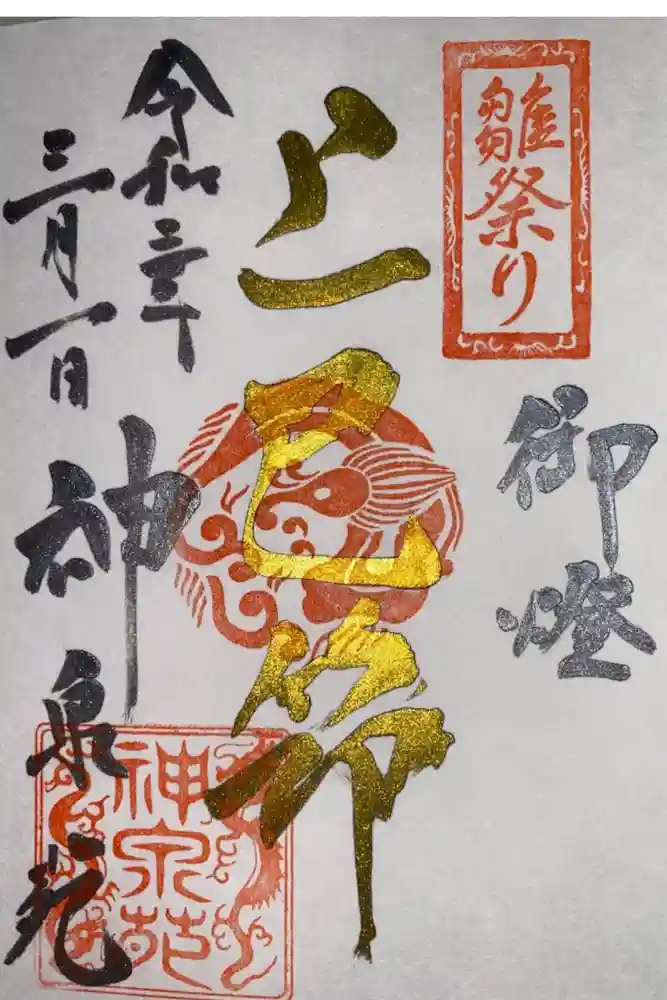 雛祭り
御燈
上巳節
令和三年
三月一日
神泉苑
神泉苑